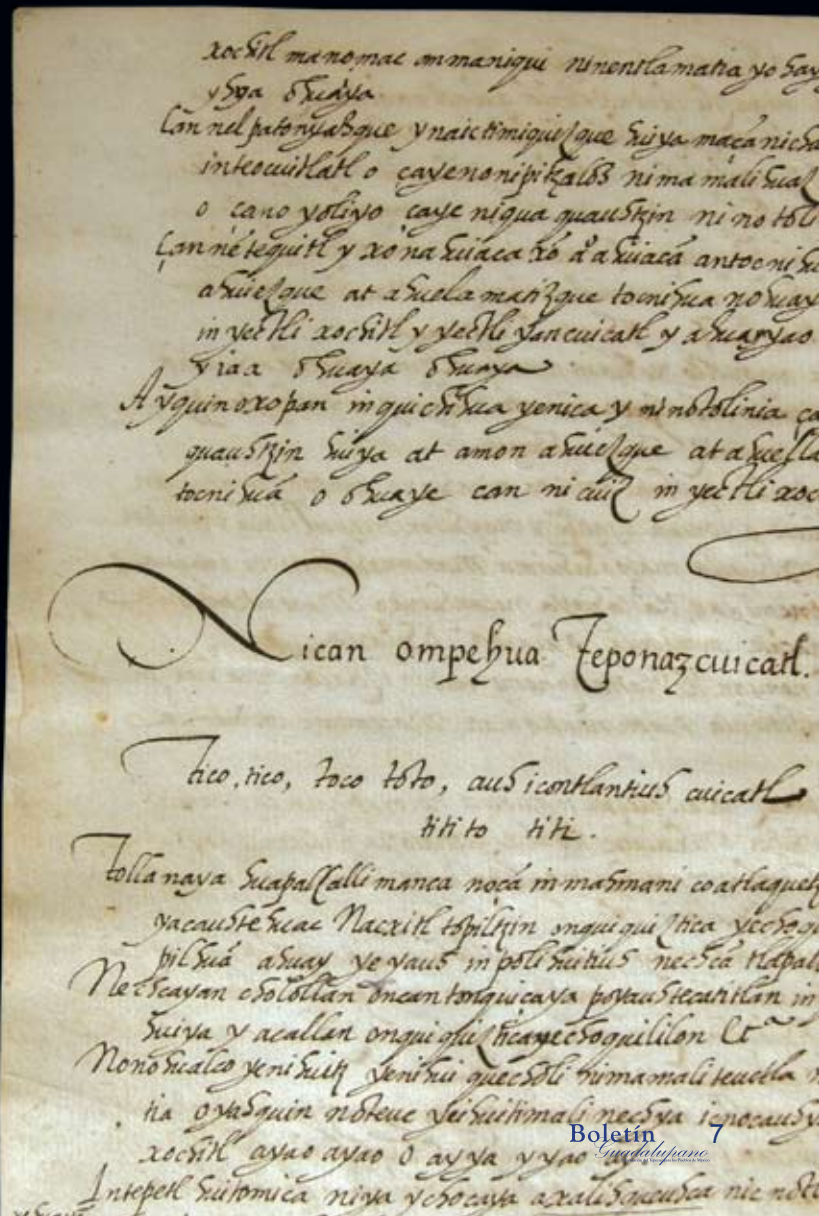 xochitl manomac onmaniqui ninentlamatia yo hay
yhya ohuaya
Can nel patonyazque ynaictimiquizque huiya maçanicha
inteocuitlatl o cayenonipitzaloz nimamalihuaz
o cano yoliyo caye niqua quauhtzin ni no toli
Çan netequitl y xonahuiaca xo ahuiacã antocnihu
ahuiezque at ahuelamatizque tocnihua nohuay
in yectli xochitl y yectli yancuicatl y ahuayyao
yiaa ohuaya ohuaya
Ayquinoxopan inquichihua yenica y ninotolinia ça
quauhtzin huiya at amon ahuiezque at ahuella
tocnihuã o ohuaye can nicuiz in yectli xoc
Nican ompehua Teponazcuicatl.
Tico, tico, toco toto, auh icontlantiuh cuicatl
titito titi.
Tollanaya huapalcalli manca noçã inmahmani coatlaquetz
yacauhtehuac Nacxitl topiltzin onquiquiztica yechoqui
pilhuã ahuay yeyauh inpolihuitiuh nechcã tlapall
Nechcayan cholollan oncan tonquiçaya poyauhtecatitlan in
huiya y acallan onquiquizticayechoquililon &c
Nonohualco yenihuitz yenihui quecholi nimamaliteuctla n
tia oyahquin noteuc yeihuitimali nechya icnocauhy
xochitl ayao ayao o ayya yyao ay
Intepetl huitomica niya ychocaya axalihcueuhca nic noti
Boletín 7
Guadalupano